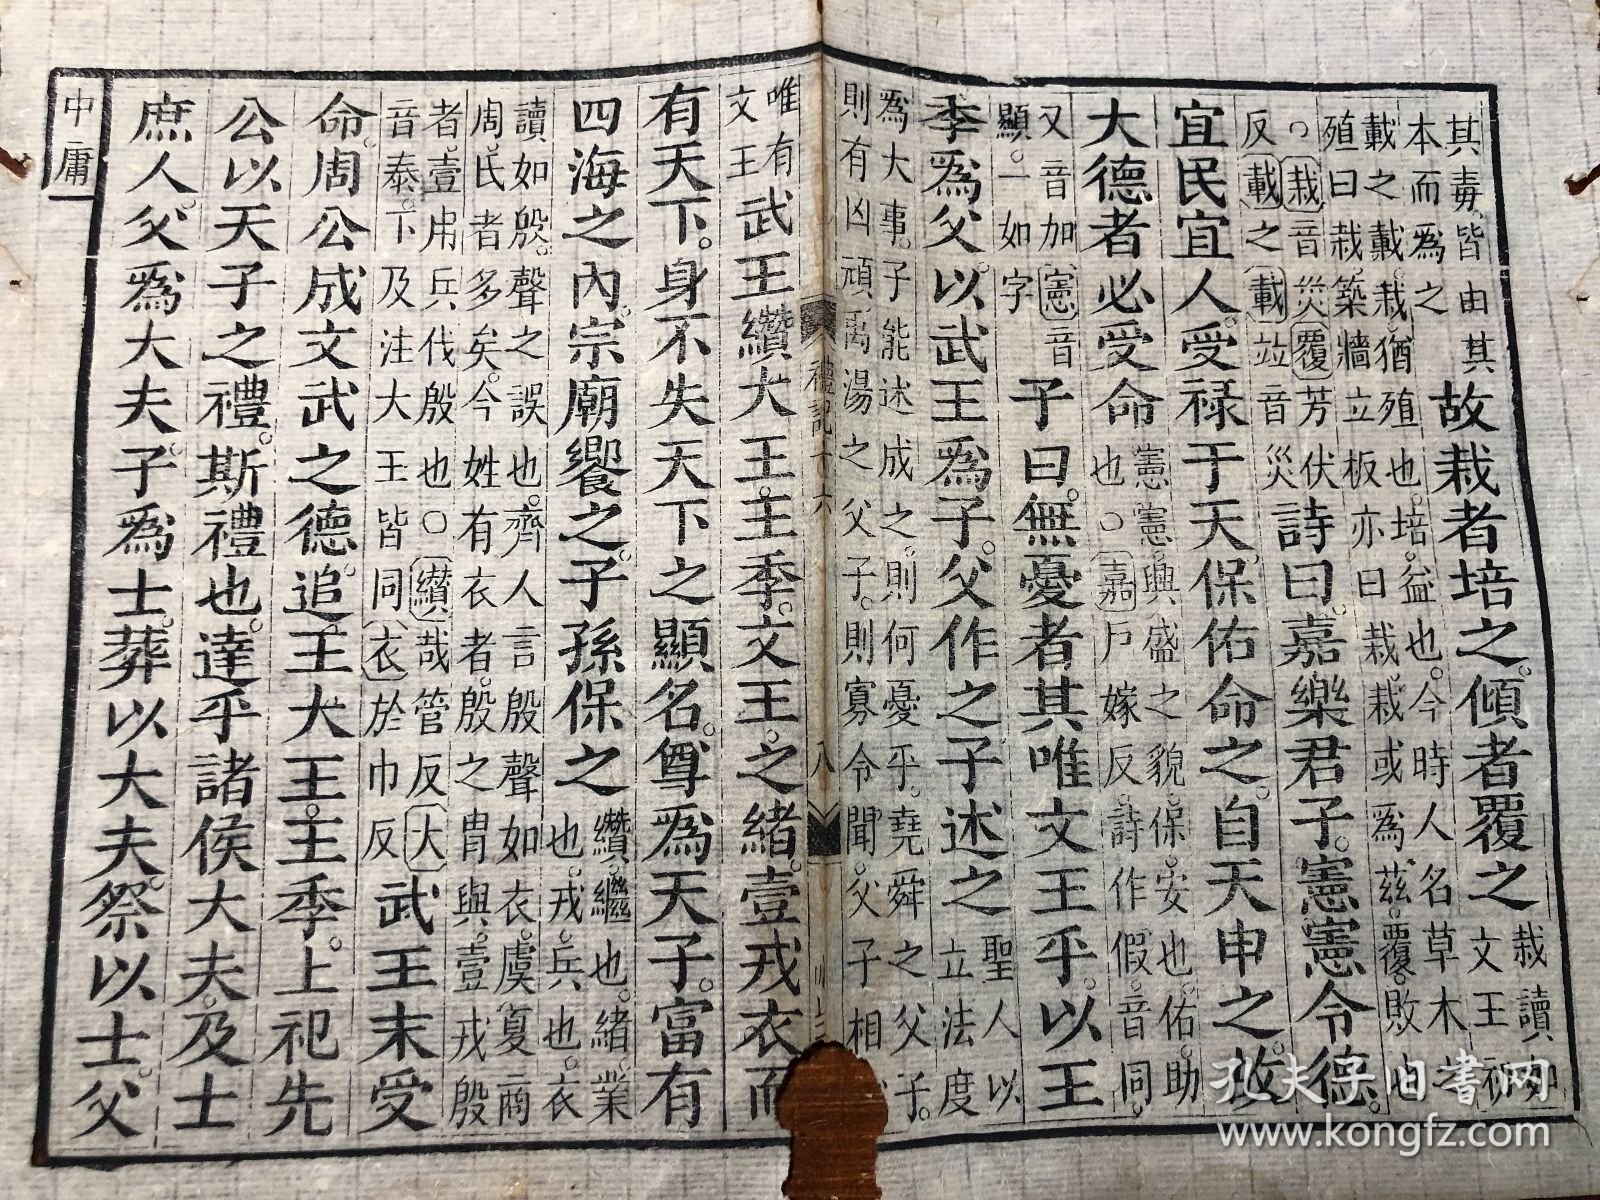 其毒皆由其
本而爲之
故栽者培之。傾者覆之
栽讀如
文王初
載之載。栽猶殖也。培。益也。今時人名草木之
殖曰栽。築牆立板亦曰栽。栽或爲茲。覆。敗也
○栽音災覆芳伏
反載之載竝音災
詩曰。嘉樂君子。憲憲令德。
宜民宜人。受祿于天。保佑命之。自天申之。故
大德者必受命
憲憲。興盛之貌。保。安也。佑。助
也○嘉戶嫁反。詩作假。音同。
又音加憲音
顯。一如字
子曰。無憂者其唯文王乎。以王
季爲父。以武王爲子。父作之。子述之
聖人以
立法度
爲大事。子能述成之。則何憂乎。堯舜之父子。
則有凶頑。禹湯之父子。則寡令聞。父子相
禮記十六
八
唯有
文王
武王纘大王。王季。文王。之緒。壹戎衣而
有天下。身不失天下之顯名。尊爲天子。富有
四海之內。宗廟饗之。子孫保之
纘。繼也。緒。業
也。戎。兵也。衣
讀如殷。聲之誤也。齊人言殷聲如衣。虞夏商
周。氏者多矣。今姓有衣者。殷之冑與。壹戎殷
者。壹用兵伐殷也○纘哉管反大
音泰。下及注大王皆同衣於巾反
武王末受
命。周公成文武之德。追王大王。王季。上祀先
公以天子之禮。斯禮也。達乎諸侯大夫。及士
庶人。父爲大夫。子爲士。葬以大夫。祭以士。父
中庸
孔夫子旧书网
www.kongfz.com